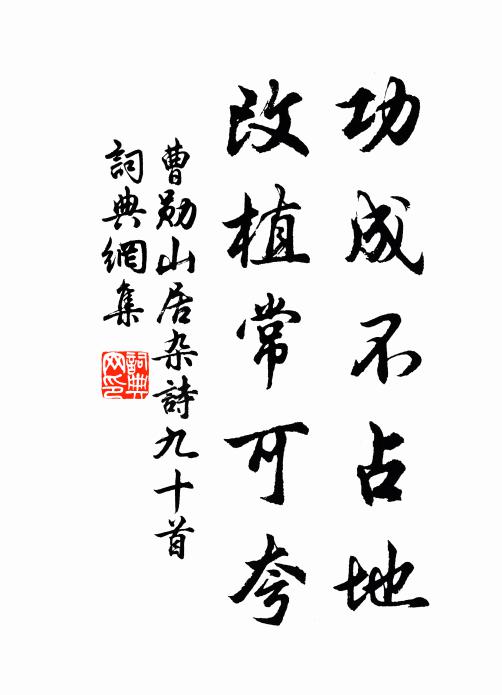 功成不占地
改植常可夸
曹勛山居杂詩九十首
詞典網集
詞典網印